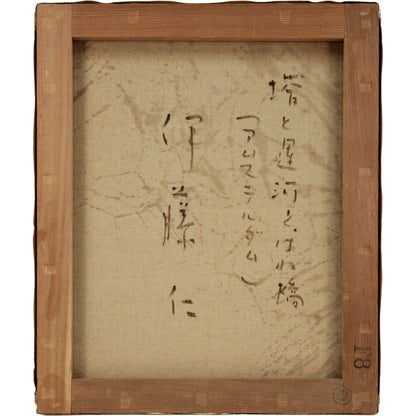 塔と運河とはね橋
(アムステルダム)
伊藤仁
F8